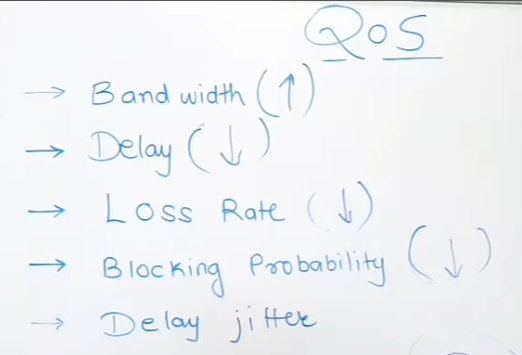 QoS
→ Bandwidth (↑)
→ Delay (↓)
→ Loss Rate (↓)
→ Blocking Probability (↓)
→ Delay jitter